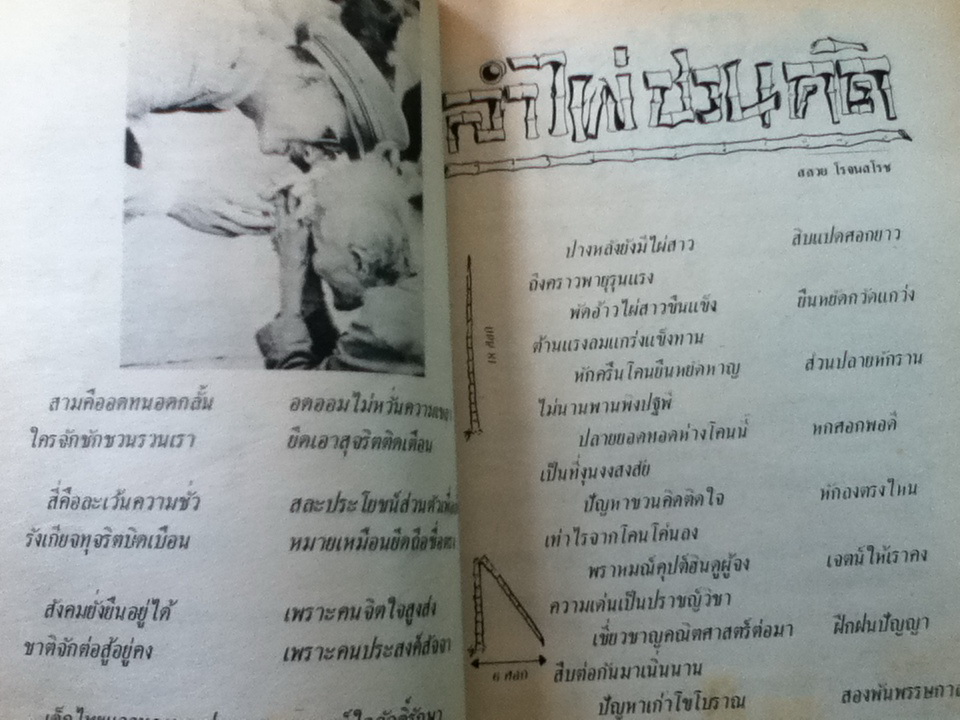 สามคืออดทนอดกลั้น อดออมไม่หวั่นความ
ใครจักชักชวนรวนเรา ยึดเอาสุจริตติดเตือน
สี่คือละเว้นความชั่ว สละประโยชน์ส่วนตัว
รังเกียจทุจริตบิดเบือน หมายเหมือนยึดถือ
สังคมยั่งยืนอยู่ได้ เพราะคนจิตใจสูงส่ง
ชาติจักต่อสู้อยู่คง เพราะคนประสงค์สัจจา
ลำไผ่ชวนคิด
สลวย โรจนสโรช
ปางหลังยังมีไผ่สาว สิบแปดศอกยาว
ถึงคราวพายุรุนแรง
พัดอ้าวไผ่สาวขืนแข็ง ยืนหยัดกวัดแกว่ง
ต้านแรงลมแกร่งแข็งทาน
หักครืนโคนยืนหยัดหาญ ส่วนปลายหักราน
ไม่นานพานพิงปฐพี
ปลายยอดทอดห่างโคนนี้ หกศอกพอดี
เป็นที่งุนงงสงสัย
ปัญหาชวนคิดติดใจ หักลงตรงไหน
เท่าไรจากโคนโค่นลง
พราหมณ์คุปต์ฮินดูผู้จง เจตน์ให้เราคง
ความเด่นเป็นปราชญ์วิชา
เชี่ยวชาญคณิตศาสตร์ต่อมา ฝึกฝนปัญญา
สืบต่อกันมาเนิ่นนาน
ปัญหาเก่าไขโบราณ สองพันพรรษกาล
18 ศอก
6 ศอก